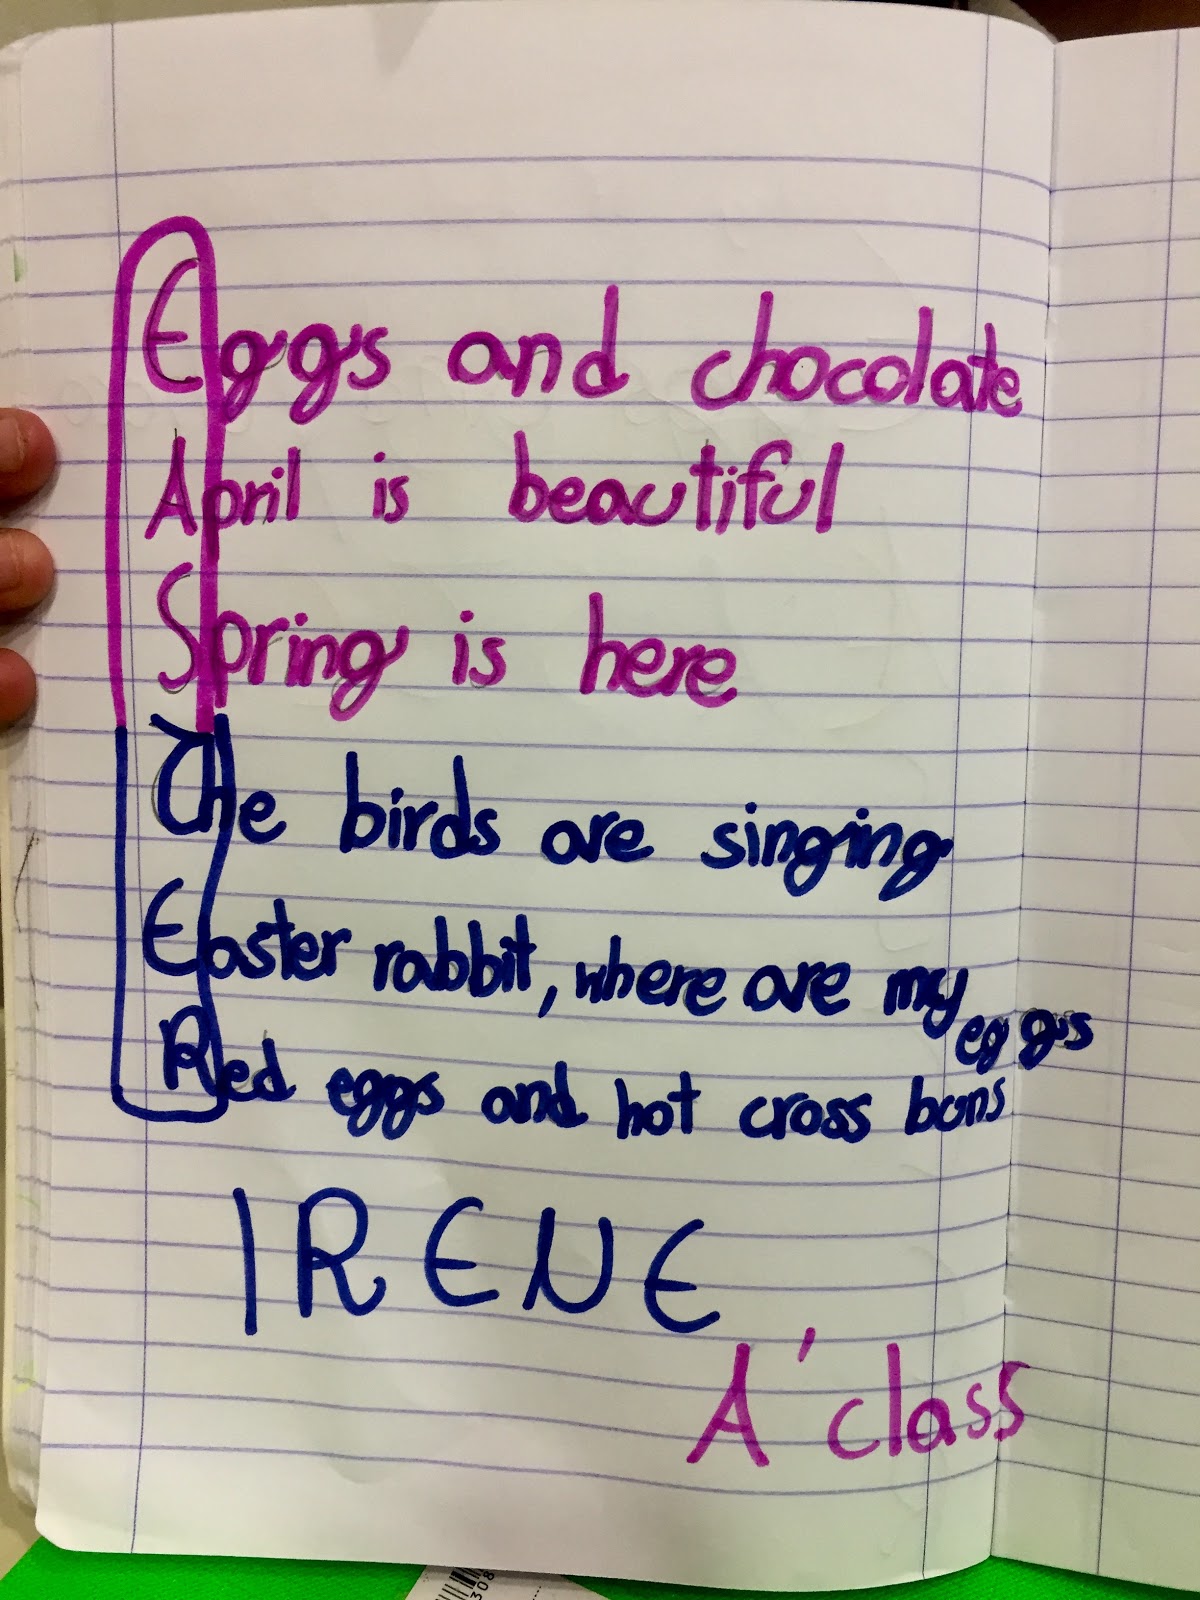 Eggs and chocolate
April is beautiful
Spring is here
The birds are singing
Easter rabbit, where are my eggs
Red eggs and hot cross buns
IRENE
A' class
308